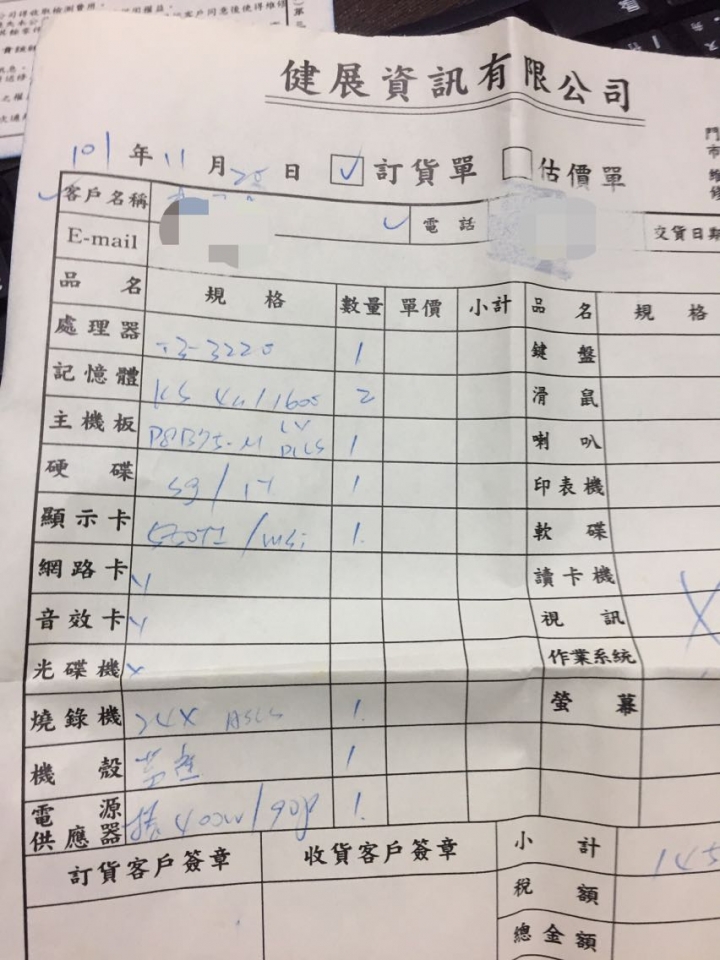 健展資訊有限公司
101 年 11 月 28 日 訂貨單 估價單
客戶名稱 電話 交貨日期
E-mail
品名 規格 數量 單價 小計 品名 規格
處理器 i3-3220 1 鍵盤
記憶體 KS 4G/1600 2 滑鼠
主機板 P8B75-M LV PLUS 1 喇叭
硬碟 sg/1T 1 印表機
顯示卡 /msi 1 軟碟
網路卡 讀卡機
音效卡 視訊
光碟機 x 作業系統
燒錄機 24X ASUS 1 螢幕
機殼 1
電源供應器 400W/90 1
訂貨客戶簽章 收貨客戶簽章 小計 145
稅額
總金額